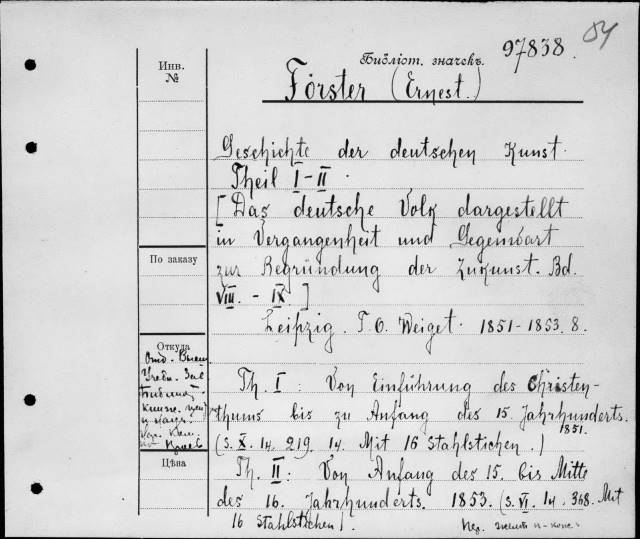 84
Библіот. значекъ. 97838.
Инв.
№
Förster (Ernest.)
Geschichte der deutschen Kunst.
Theil I-II.
[Das deutsche Volk dargestellt
in Vergangenheit und Gegenwart
zur Begründung der Zukunst. Bd.
VIII. - IX.]
По заказу
Leipzig. T. O. Weigel. 1851-1853. 8.
Откуда
Отд.
Учебн. Зав.
Библіот.
Th. I: Von Einführung des Christen-
thums bis zu Anfang des 15. Jahrhunderts.
1851.
(S. X. 14. 219. 14. Mit 16 Stahlstichen.)
Цѣна
Th. II: Von Anfang des 15. bis Mitte
des 16. Jahrhunderts. 1853. (S. VI. 14. 368. Mit
16 Stahlstichen).